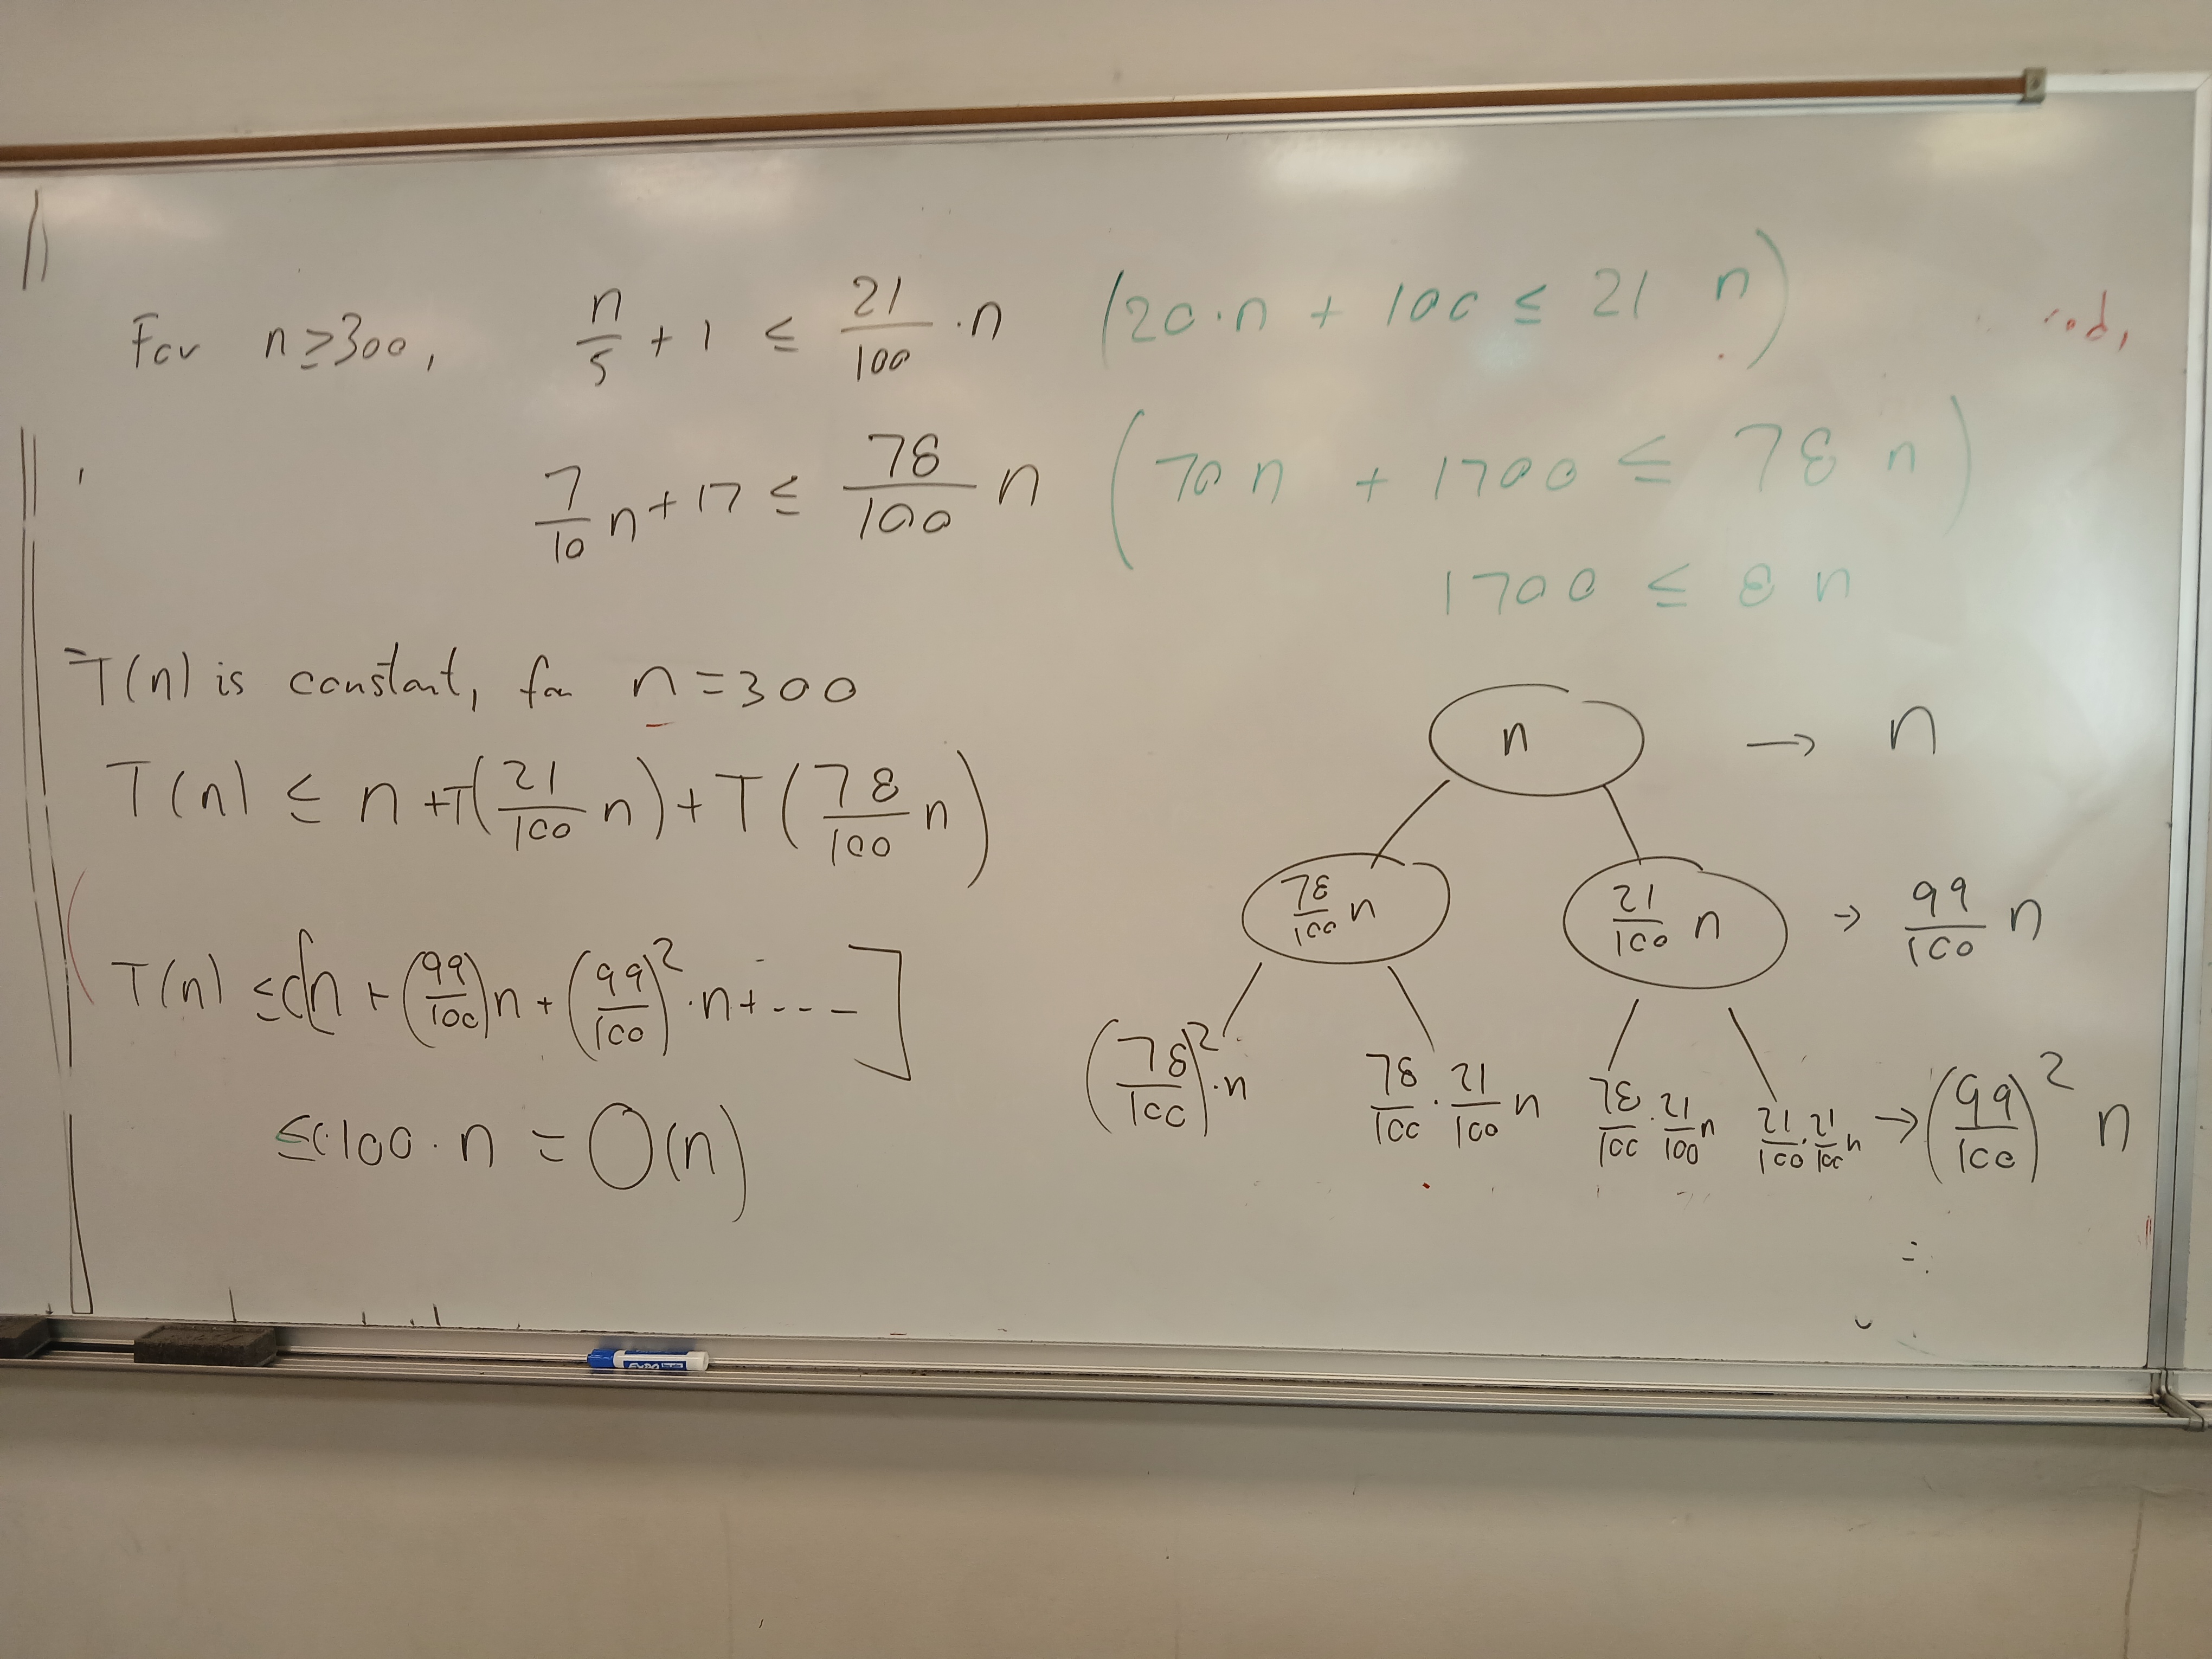 For n ≥ 300, n/5 + 1 ≤ 21/100 · n (20·n + 100 ≤ 21 n)
7/10 n + 17 ≤ 78/100 n (70 n + 1700 ≤ 78 n)
1700 ≤ 8 n
T(n) is constant, for n = 300
T(n) ≤ n + T(21/100 n) + T(78/100 n)
T(n) ≤ c[n + (99/100)n + (99/100)^2 · n + ---]
≤ c·100·n = O(n)
n → n
78/100 n 21/100 n → 99/100 n
(78/100)^2 · n 78/100 · 21/100 n 78/100 · 21/100 n 21/100 · 21/100 n → (99/100)^2 n
EXPO